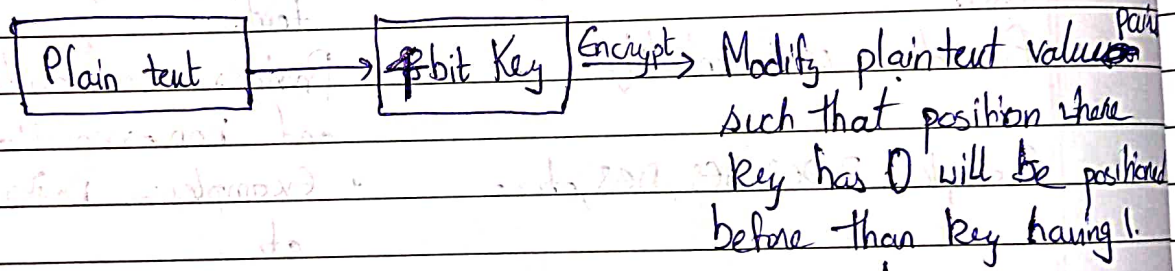 Plain text → bit Key Encrypt → Modify plaintext value pair
such that position where
key has 0 will be positioned
before than key having 1.